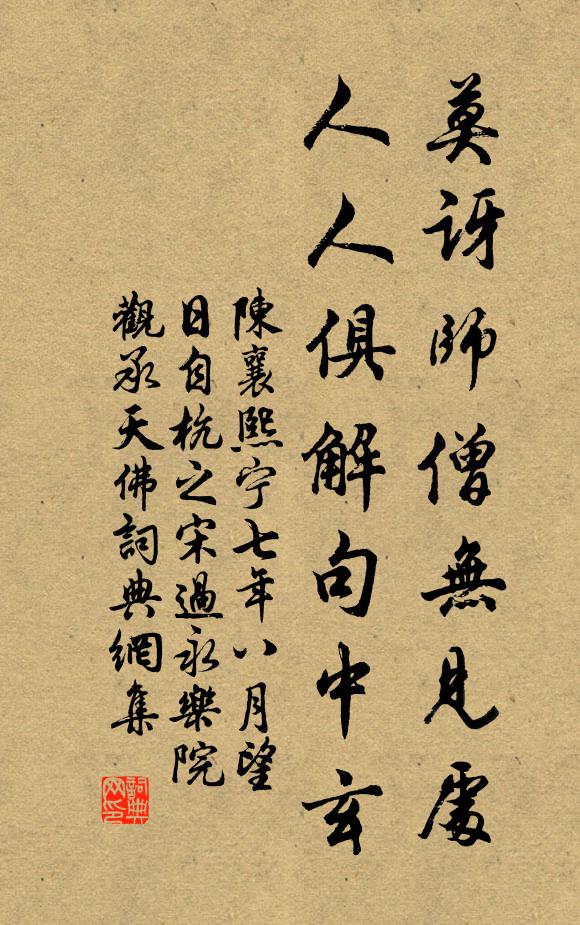 莫訝師僧無見處
人人俱解句中玄
陳襄熙宁七年八月望
日自杭之宋過永樂院
觀承天佛詞典網集
詞典
网印